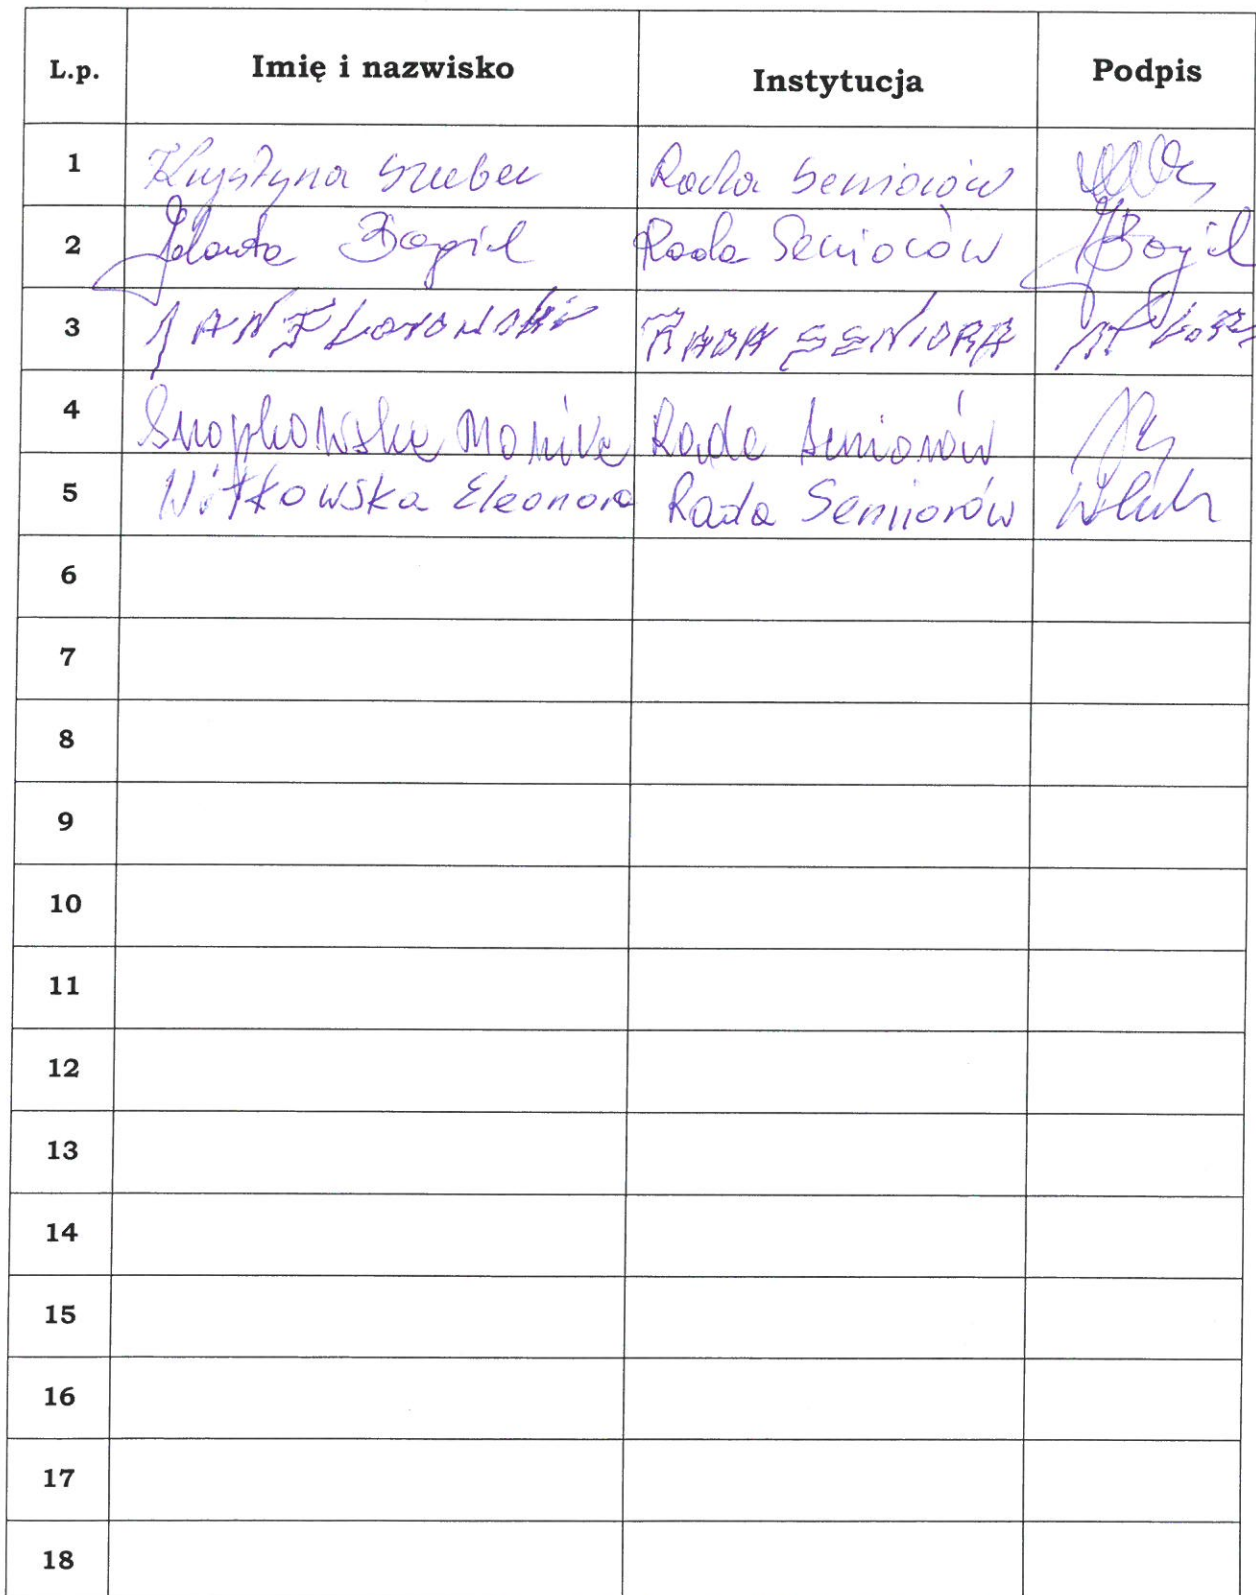 L.p. Imię i nazwisko Instytucja Podpis
1 Krystyna Rada Seniorów
2 Jolanta Bagiel Rada Seniorów
3 JAN RADA SENIORA
4 Snopkowska Monika Rada Seniorów
5 Witkowska Eleonora Rada Seniorów
6
7
8
9
10
11
12
13
14
15
16
17
18